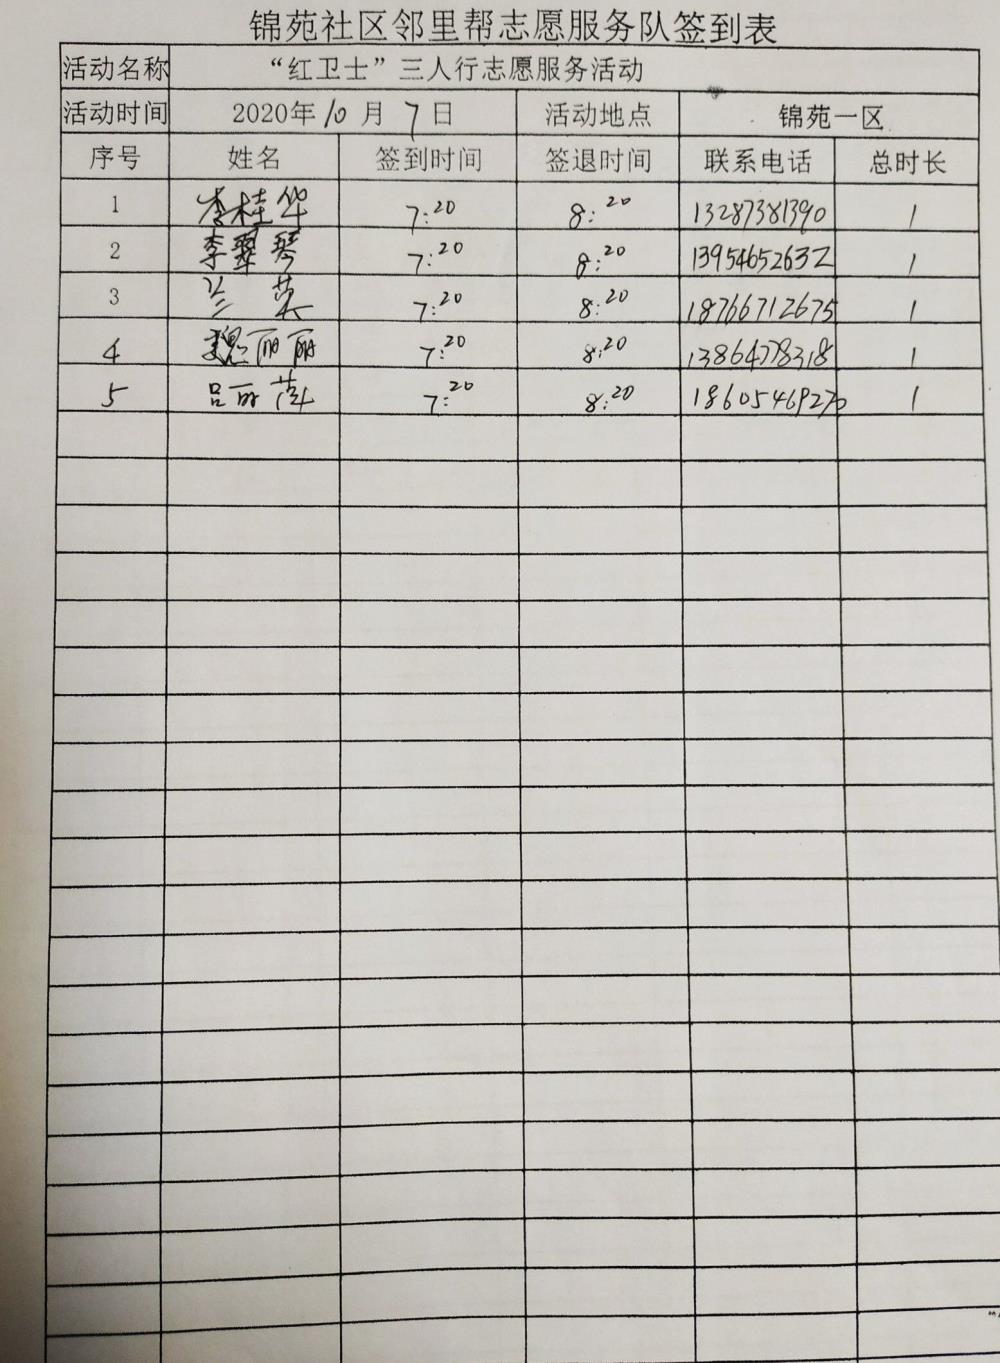 锦苑社区邻里帮志愿服务队签到表
活动名称 “红卫士”三人行志愿服务活动
活动时间 2020年10月7日 活动地点 锦苑一区
序号 姓名 签到时间 签退时间 联系电话 总时长
1 李桂华 7:20 8:20 13287381390 1
2 李翠琴 7:20 8:20 13954652632 1
3 兰英 7:20 8:20 18766712675 1
4 魏丽丽 7:20 8:20 13864778318 1
5 吕丽萍 7:20 8:20 18605469270 1